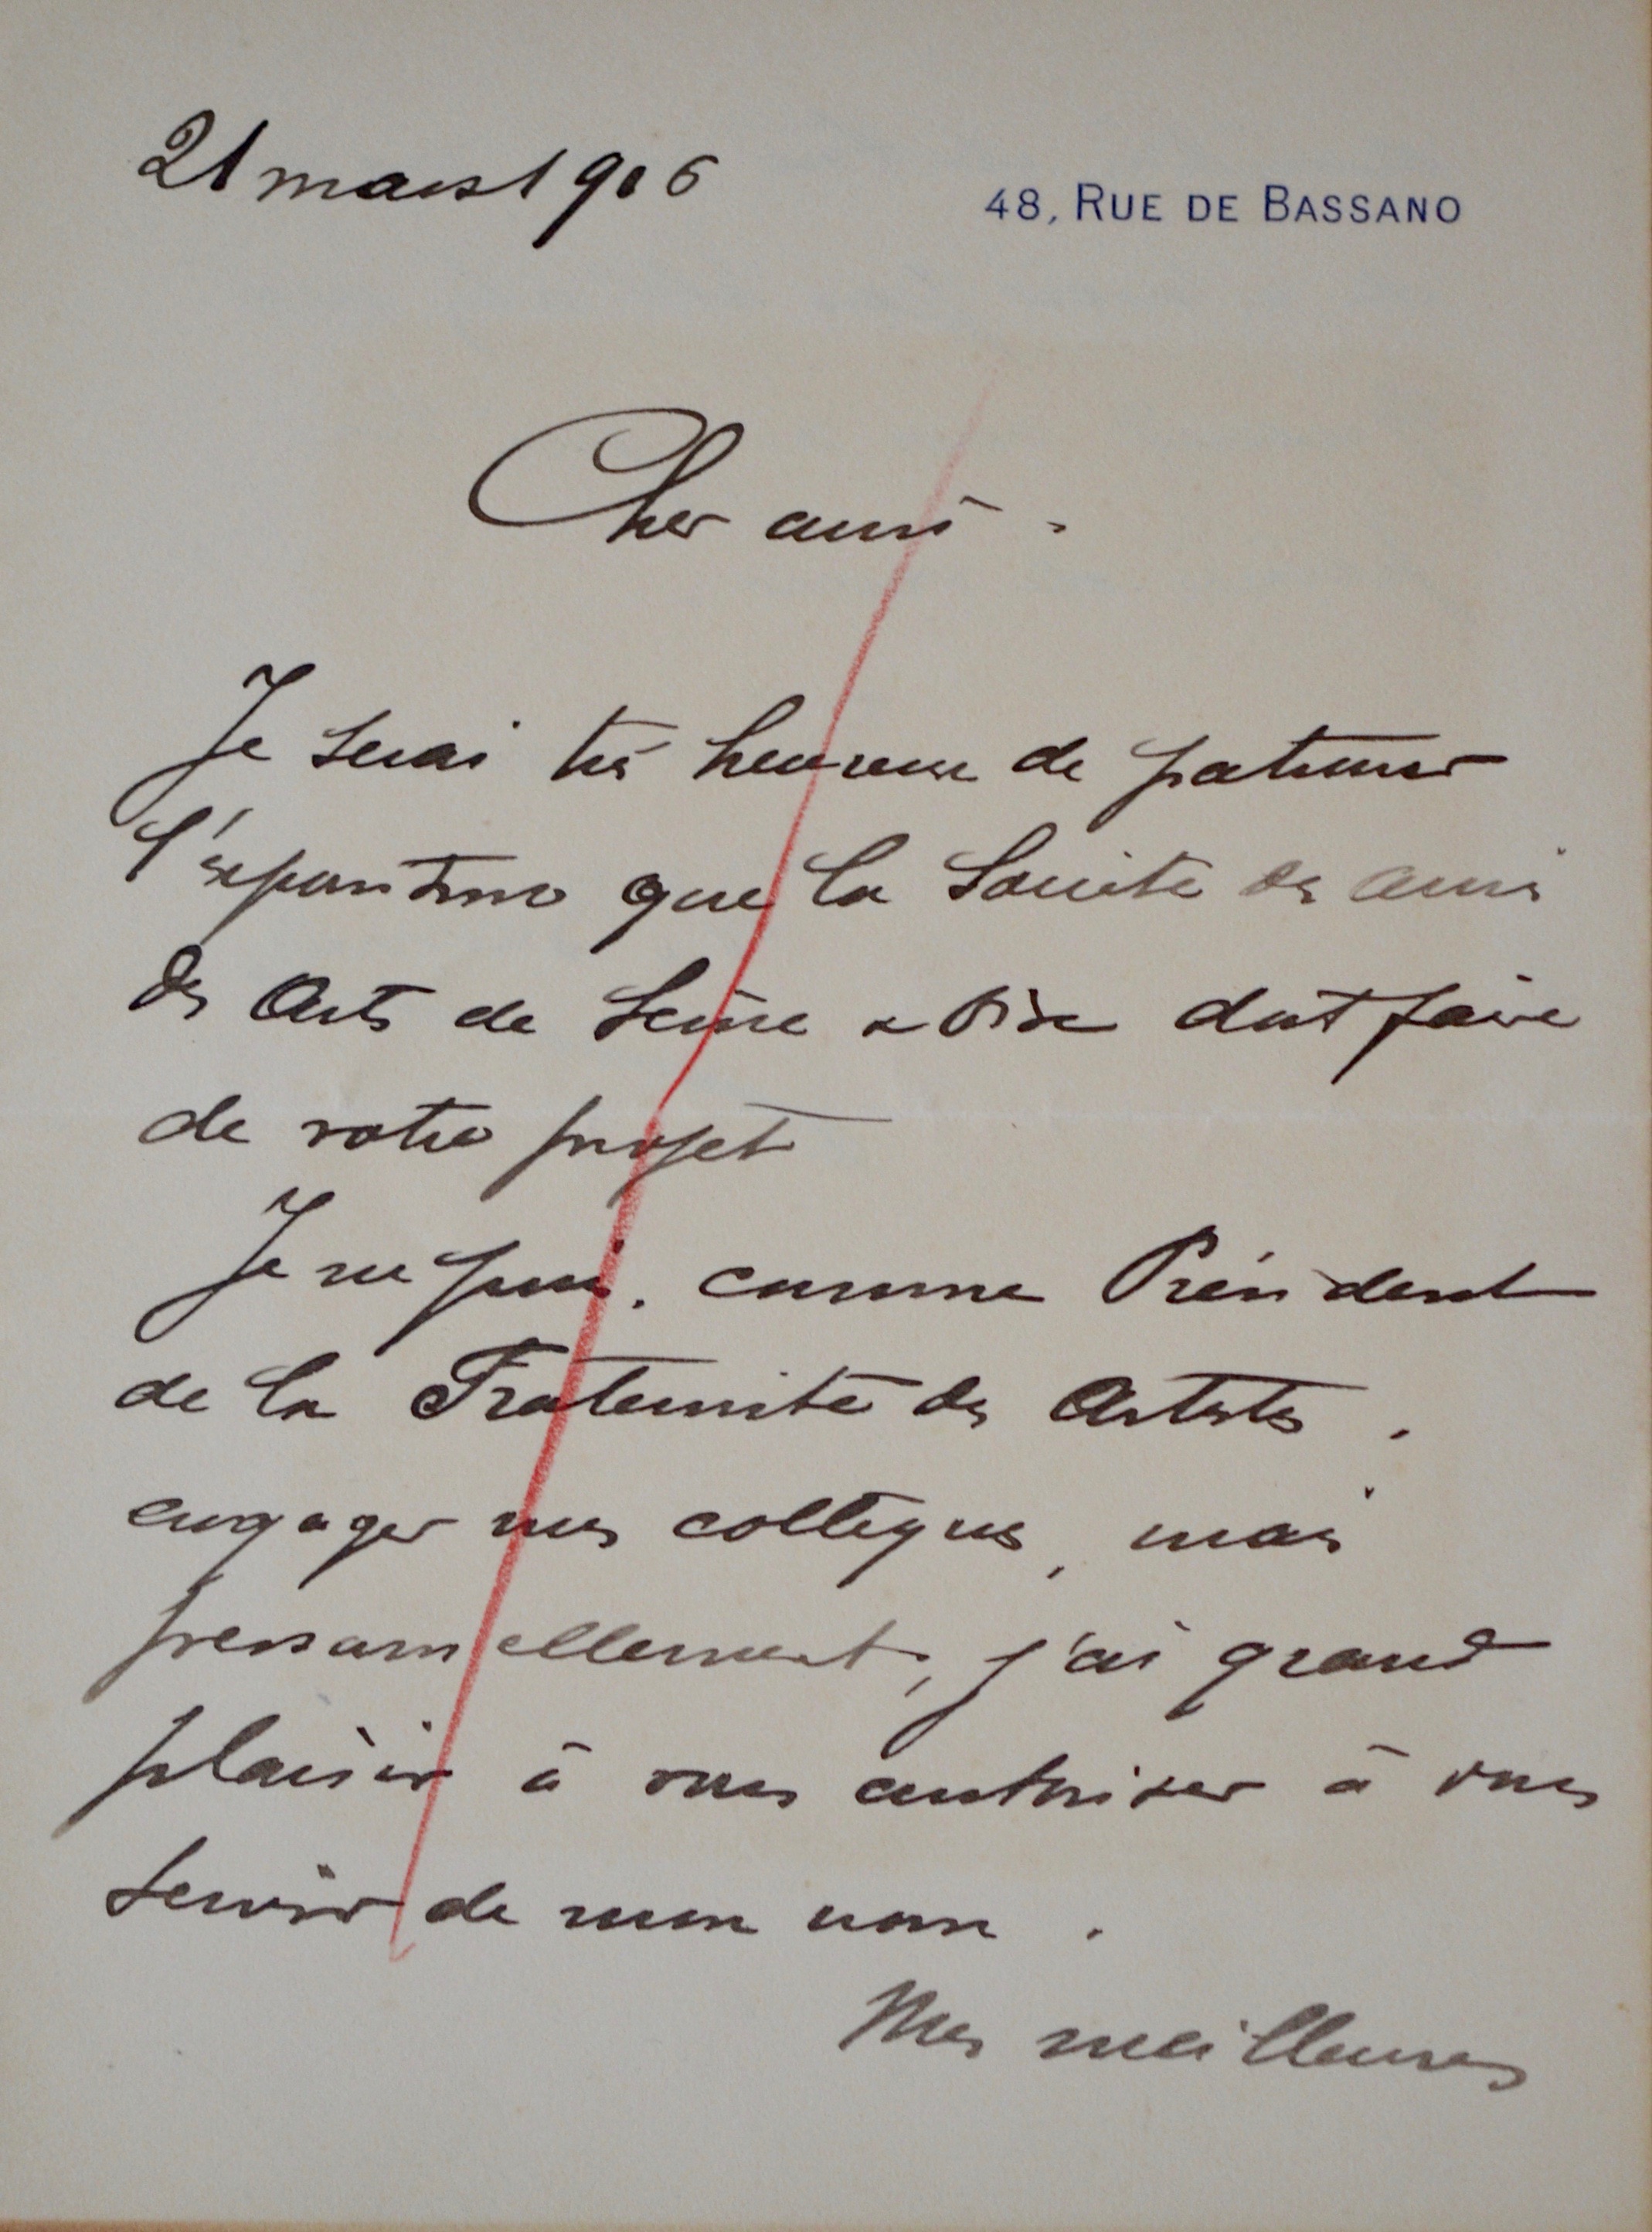 21 mars 1906
48, RUE DE BASSANO
Cher ami.
Je serai très heureux de patronner
l'exposition que la Société des amis
des Arts de Seine & Oise doit faire
de votre projet
Je ne puis, comme Président
de la Fraternité des Artistes,
engager mes collègues, mais
personnellement, j'ai grand
plaisir à vous autoriser à vous
servir de mon nom.
Mes meilleures